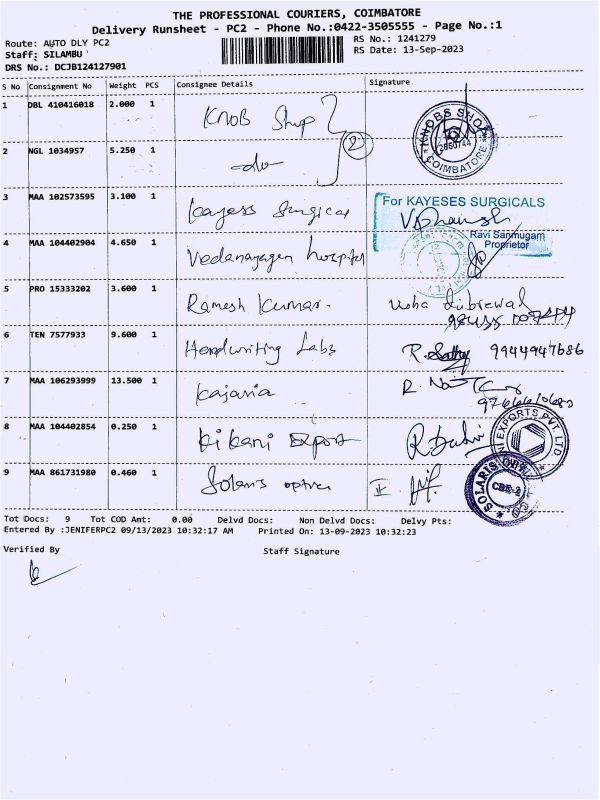 THE PROFESSIONAL COURIERS, COIMBATORE
Delivery Runsheet - PC2 - Phone No.:0422-3505555 - Page No.:1
Route: AUTO DLY PC2
RS No.: 1241279
Staff: SILAMBU
RS Date: 13-Sep-2023
DRS No.: DCJB124127901
S No Consignment No Weight PCS Consignee Details Signature
1 DBL 410416018 2.000 1 KNOB Shop
KNOBS SHOP
COIMBATORE
2 NGL 1034957 5.250 1 -do-
2
3 MAA 102573595 3.100 1 Kayess Surgical
For KAYESES SURGICALS
Ravi Sanmugam
Proprietor
4 MAA 104402904 4.650 1 Vedanayagen hospital
5 PRO 15333202 3.600 1 Ramesh Kumar.
6 TEN 7577933 9.600 1 Handwriting Labs 9944947686
7 MAA 106293999 13.500 1 Kajaria
8 MAA 104402854 0.250 1 Kikani Export
EXPORTS PVT. LTD
9 MAA 861731980 0.460 1 Solaris optics
SOLARIS
CBE-2
Tot Docs: 9 Tot COD Amt: 0.00 Delvd Docs: Non Delvd Docs: Delvy Pts:
Entered By :JENIFERPC2 09/13/2023 10:32:17 AM Printed On: 13-09-2023 10:32:23
Verified By Staff Signature